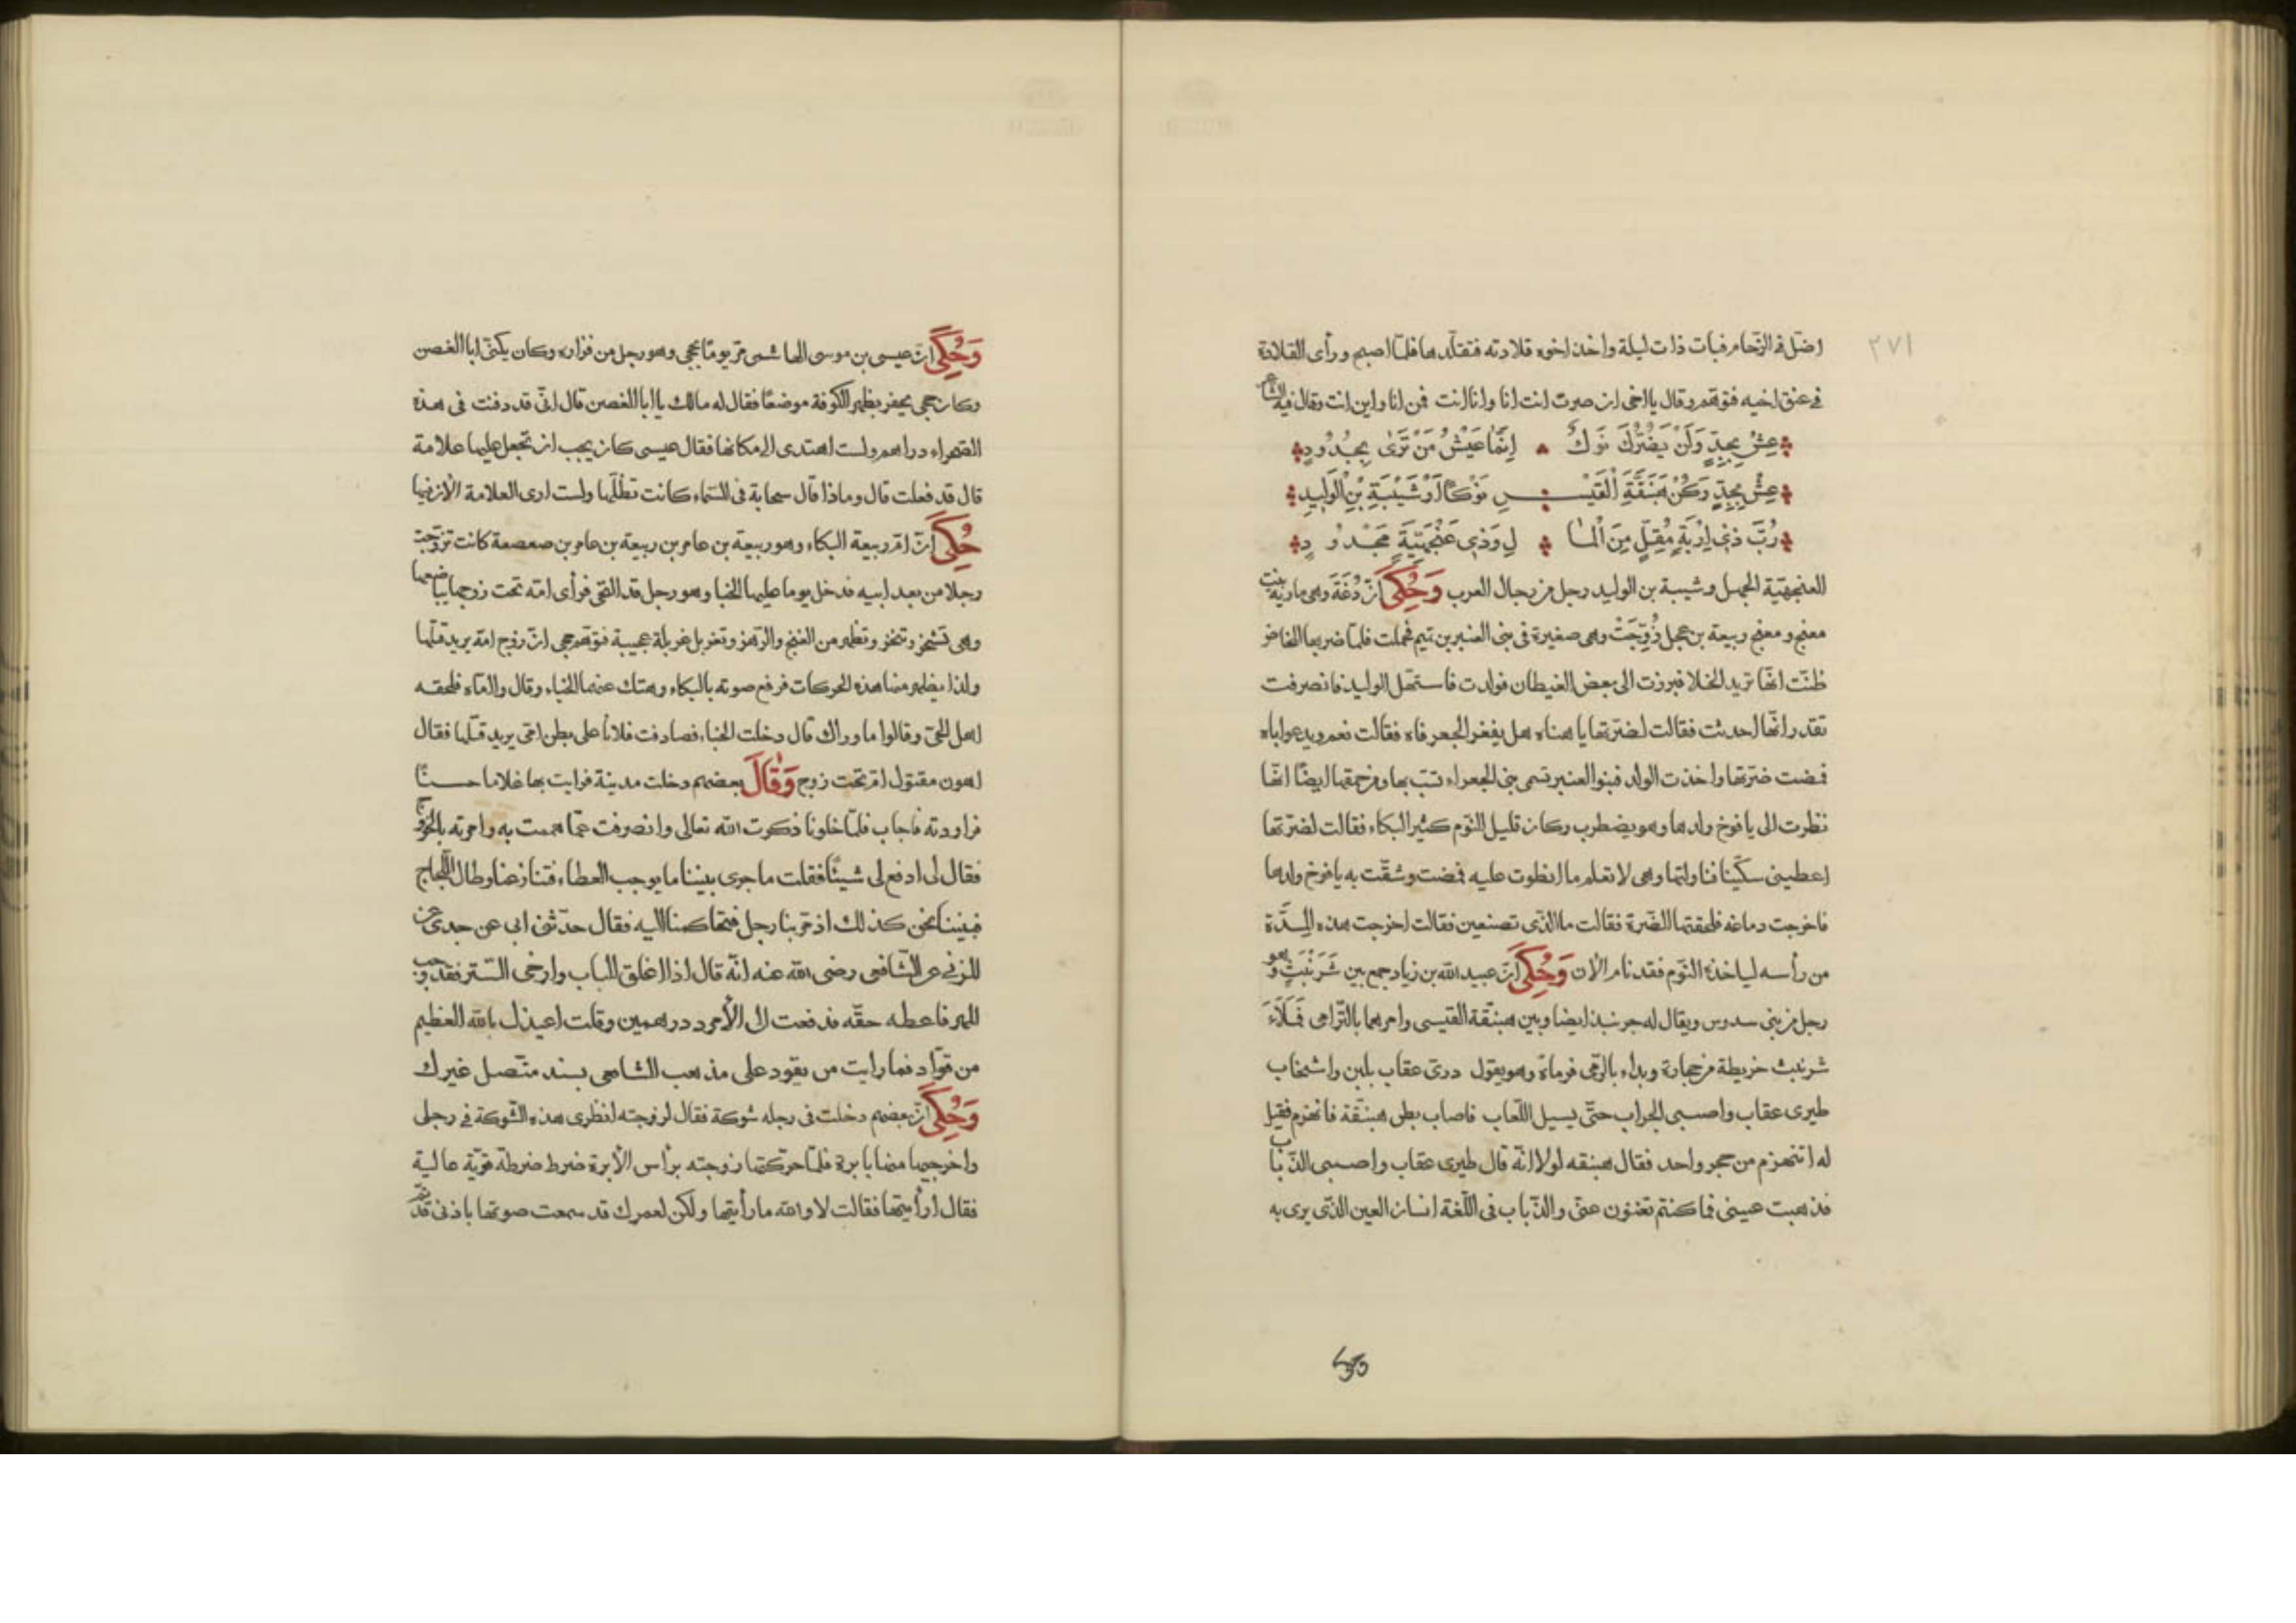 ٢٧١
اضل في الزحام فبات ذات ليلة واخذ اخوه قلادته فتقلدها فلما اصبح ورأى القلادة
في عنق اخيه فتوهم وقال يا اخى ان صرت انت انا وانا انت فمن انا واين انت وقال فيه الشاعر
عِشْ بِجَدٍّ وَلَنْ يَضُرَّكَ نَوكٌ اِنَّمَا عَيْشُ مَنْ تَرَى بِجُدُودِ
عِشْ بِجَدٍّ وَكُنْ هَبَنَّقَةَ الْقَيْسِ نَوْكًا اَوْ شَيْبَةَ بْنَ الْوَلِيدِ
رُبَّ ذى اِرْبَةٍ مُقِلٍّ مِنَ الْمَا لِ وَذى عُنْجُهِيَّةٍ مَجْدُودِ
العنجهية الجهل وشيبة بن الوليد رجل من رجال العرب وَحُكِىَ انّ دُغَةَ وهى مارية بنت
معنج ومعنج ربيعة بن عجل زُوِّجَتْ وهى صغيرة في بنى العنبر بن تيم فحملت فلما ضربها المخاض
ظنّت انّها تريد الخلا فبرزت الى بعض الغيطان فولدت فاستهل الوليد فانصرفت
تقدر انّها احدثت فقالت لضرّتها يا هناه هل يفغر الجعر فاه فقالت نعم ويدعو اباه
فمضت ضرّتها واخذت الولد فبنوا العنبر تسمى بنى الجعراء تسبّ بها ومن حمقها ايضًا انّها
نظرت الى يافوخ ولدها وهو يضطرب وكان قليل النّوم كثير البكاء فقالت لضرّتها
اعطينى سكّينا فناولتها وهى لا تعلم ما انطوت عليه فمضت وشقّت به يافوخ ولدها
فاخرجت دماغه فلحقتها الضّرة فقالت ما الّذى تصنعين فقالت اخرجت هذه المِدّة
من رأسه لياخذه النّوم فقد نام الآن وَحُكِىَ انّ عبيد الله بن زياد جمع بين شَرَنْبَثٍ وهو
رجل من بنى سدوس ويقال له جرنبذ ايضا وبين هبنّقة القيسى وامرهما بالتّرامى فَمَلَأَ
شرنبث خريطة من حجارة وبداء بالرّمى فرماة وهو يقول درى عقاب بلبن واشخاب
طيرى عقاب واصيبى الجراب حتّى يسيل اللّعاب فاصاب بطن هبنّقة فانهزم فقيل
له اتنهزم من حجر واحد فقال هبنقه لولا انّه قال طيرى عقاب واصيبى الذّباب
فذهبت عينى فما كنتم تغنون عنى والذّباب في اللّغة انسان العين الّذى يرى به
وَحُكِىَ انّ عيسى بن موسى الهاشمى مرّ يومًا بجحى وهو رجل من فزاره وكان يكنّى ابا الغصن
وكان جحى يحفر بظهر الكوفة موضعًا فقال له مالك يا ابا الغصن قال انّى قد دفنت فى هذه
الصّحراء دراهم ولست اهتدى الى مكانها فقال عيسى كان يجب ان تجعل عليها علامة
قال قد فعلت قال وماذا قال سحابة فى السّماء كانت تظلّها ولست ارى العلامة الآن فيها
حُكِىَ انّ امّ ربيعة البكاء وهو ربيعة بن عامر بن ربيعة بن عامر بن صعصعة كانت تزوّجت
رجلا من بعد ابيه فدخل يوما عليها الخبا وهو رجل قد التحى فرأى امّه تحت زوجها يباضعها
وهى تشخر وتنخر وتظهر من الغنج والرّهز وتغربل غربلة عجيبة فتوهم انّ زوج امّه يريد قتلها
ولذا يظهر منها هذه الحركات فرفع صوته بالبكاء وهتك عنهما الخباء وقال واامّاه فلحقه
اهل الحىّ وقالوا ما وراك قال دخلت الخباء فصادفت فلانًا على بطن امّى يريد قتلها فقال
اهون مقتول امّ تحت زوج وَقَالَ بعضهم دخلت مدينة فرايت بها غلاما حسنًا
فراودته فاجاب فلمّا خلونا ذكرت الله تعالى وانصرفت عمّا هممت به وامرته بالخروج
فقال لى ادفع لى شيئًا فقلت ما جرى بيننا ما يوجب العطاء فتنازعنا وطال اللّجاج
فبينا نحن كذلك اذ مرّ بنا رجل فتحاكمنا اليه فقال حدّثنى ابى عن جدى عن
المزنى عن الشّافعى رضى الله عنه انّه قال اذا اغلق الباب وارخى السّتر فقد وجب
المهر فاعطه حقّه فدفعت الى الأمرد درهمين وقلت اعيذك بالله العظيم
من قوّاد فما رايت من يقود على مذهب الشافعى بسند متّصل غيرك
وَحُكِىَ انّ بعضهم دخلت فى رجله شوكة فقال لزوجته انظرى هذه الشّوكة فى رجلى
واخرجيها منها بابرة فلمّا حرّكتها زوجته برأس الأبرة ضرط ضرطة قويّة عالية
فقال ارأيتها فقالت لا والله ما رأيتها ولكن لعمرك قد سمعت صوتها باذنى